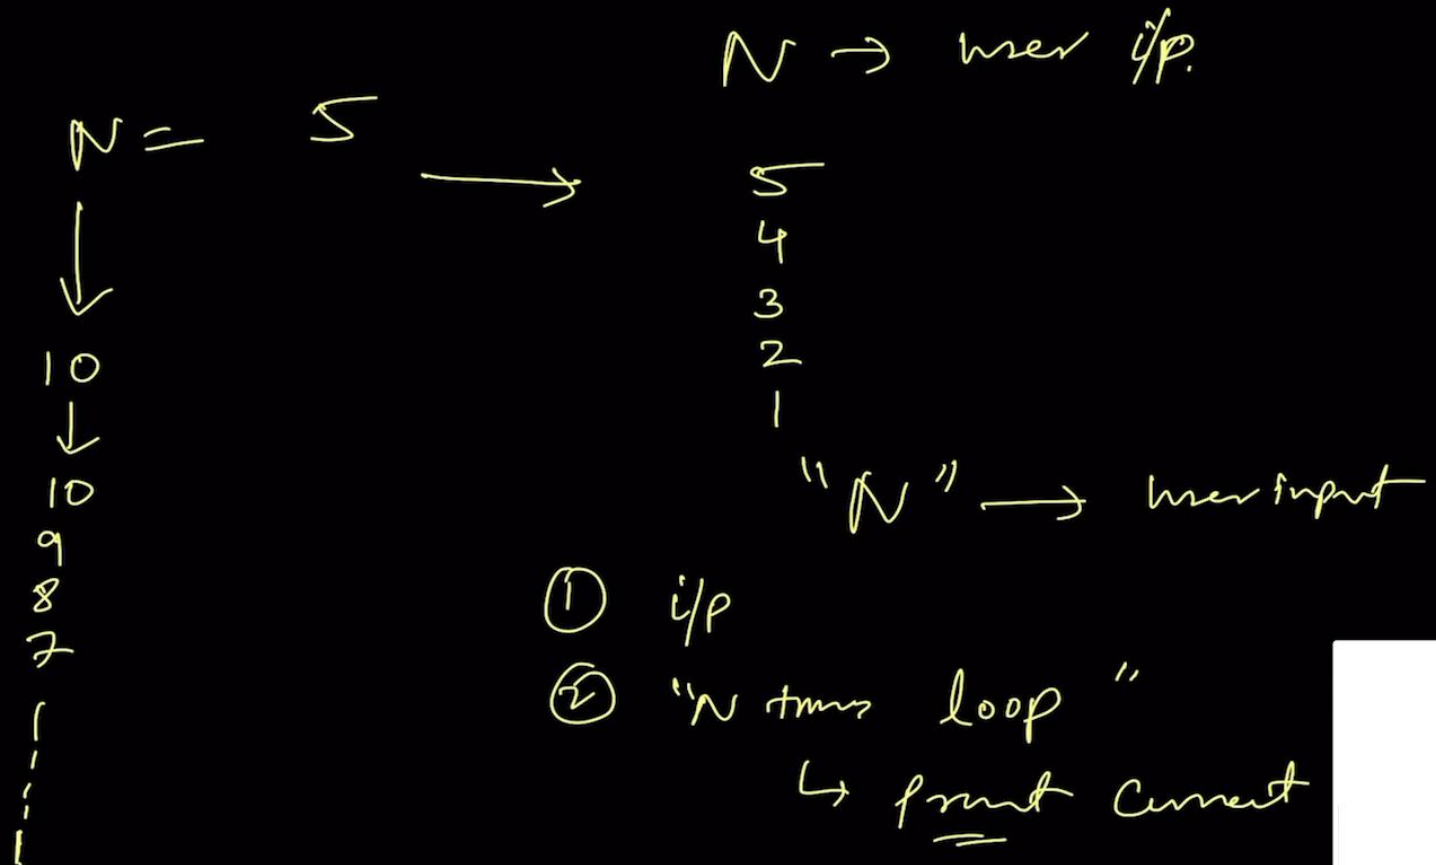 N → user i/p.
N = 5 →
5
4
3
2
1
↓
10
↓
10
9
8
7
"N" → user input
① i/p
② "N times loop"
↳ print current